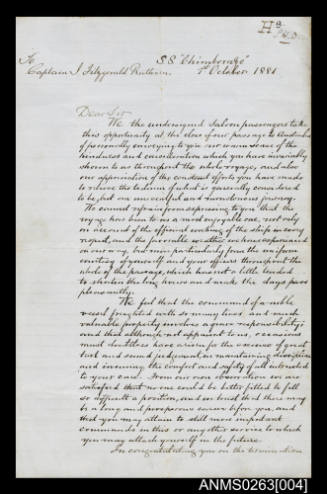 H3
To
S.S. "Chimborazo"
Captain J Fitzgerald Ruthven.
1st October 1881
Dear Sir
We the undersigned Saloon passengers take
this opportunity at the close of our passage to Australia
of personally conveying to you our warm sense of the
kindness and consideration which you have invariably
shown to us throughout the whole voyage, and also
our appreciation of the constant efforts you have made
to relieve the tedium of what is generally considered
to be, but an uneventful and monotonous passage.
We cannot refrain from expressing to you that the
voyage has been to us a most enjoyable one, not only
on account of the efficient working of the ship in every
respect, and the favorable weather we have experienced
on our way, but more particularly from the uniform
courtesy of yourself and your officers throughout the
whole of the passage, which has not a little tended
to shorten the long hours and make the days pass
pleasantly.
We feel that the command of a noble
vessel freighted with so many lives and much
valuable property involves a grave responsibility;
and that although not apparent to us, occasions
must doubtless have arisen for the exercise of great
tact and sound judgement, in maintaining discipline
and insuring the comfort and safety of all entrusted
to your care. From our own observation we are
satisfied that no one could be better fitted to fill
so difficult a position, and we trust that there may
be a long and prosperous career before you, and
that you may attain to still more important
commands in this or any other service to which
you may attach yourself in the future.
In congratulating you on the termination
ANMS0263[004]